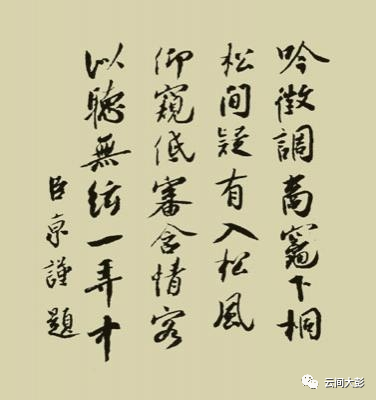 吟徵調商竈下桐
松間疑有入松風
仰窺低審含情客
似聽無絃一弄中
臣京謹題
云间大彭